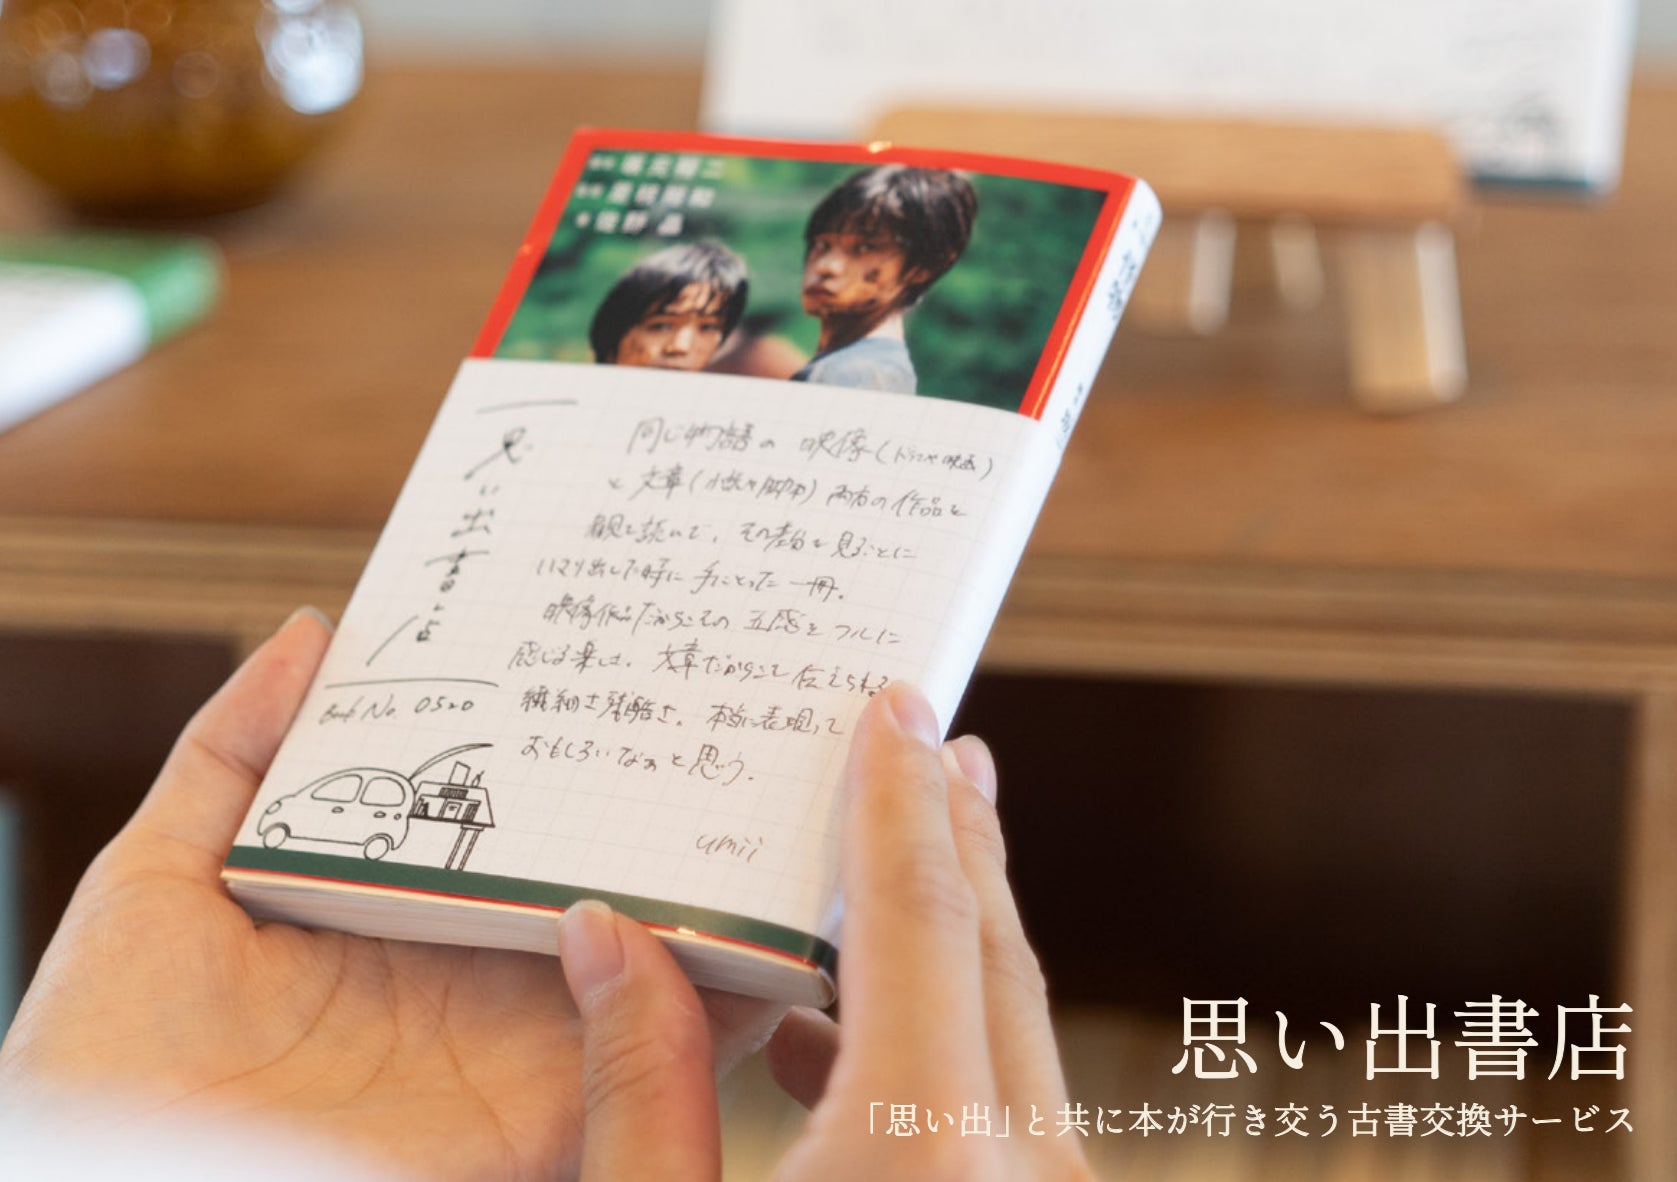 坂元裕二
是枝裕和
著 佐野 晶
思い出書店
Book No. 0520
同じ物語の 映像(ドラマや映画)
と 文章(小説や脚本) 両方の作品を
観て読んで、その差分を見ることに
ハマり出した時に 手にとった一冊。
映像作品だからこその 五感をフルに
感じる楽しさ、文章だからこそ伝えられる
繊細さ残酷さ。本当に表現って
おもしろいなぁと思う。
umii
思い出書店
「思い出」と共に本が行き交う古書交換サービス